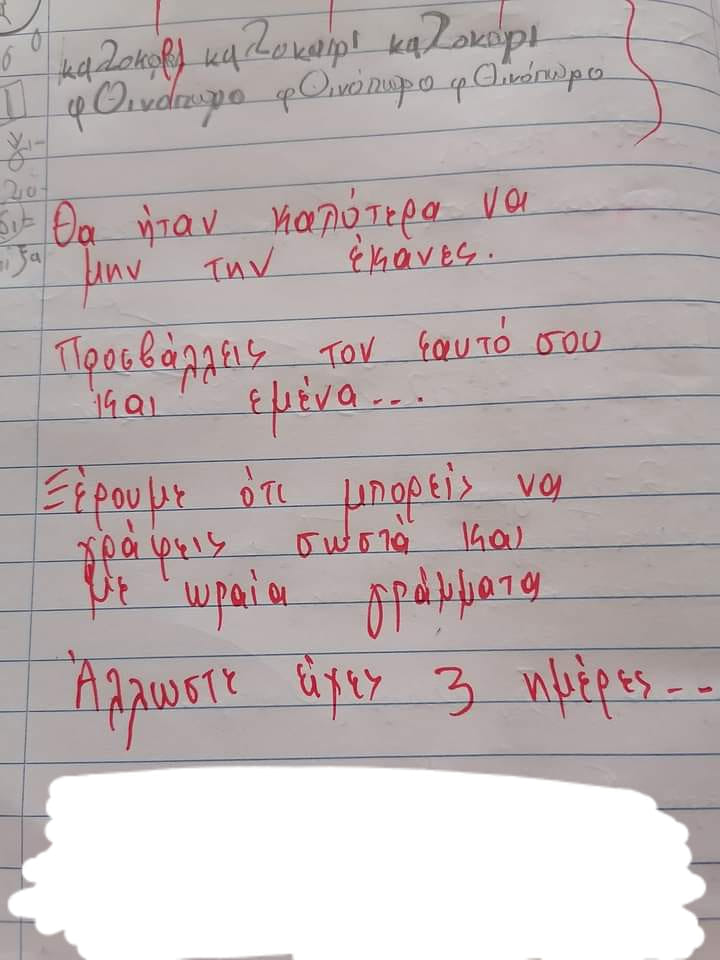 καλοκαιρι καλοκαιρι καλοκαρι
φθινόπωρο φθινόπωρο φθινόπωρο
Θα ήταν καλύτερα να
μην την έκανες.
Προσβάλλεις τον εαυτό σου
και εμένα...
Ξέρουμε ότι μπορείς να
γράψεις σωστά και
με ωραία γράμματα
Άλλωστε είχες 3 ημέρες--